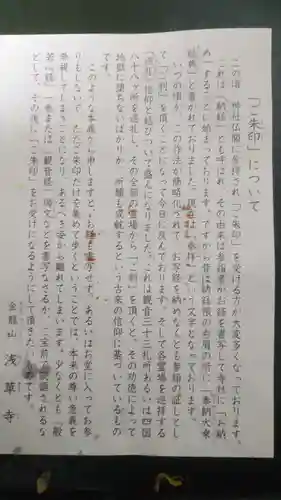 「ご朱印」について
この頃、神社仏閣に参拝され「ご朱印」を受ける方が大変多くなっております。
これは「納経」とも呼ばれ、その由来は参詣者がお経を書写して寺社に「お納
め」することに始まっております。ですから昔は納経帳の右肩の所に「奉納大乗
経典」と書かれておりました。現在は「奉拝」という文字となっております。
いつの頃か、この作法が簡略化されて、お写経を納めなくとも参詣の証しとし
て「ご朱印」を頂くことになって今日に及んでおります。そして各霊場を巡拝する
「巡礼」信仰と結びついて盛んになりました。これは観音三十三札所あるいは四国
八十八ヶ所を巡礼し、その全部の霊場から「ご朱印」を頂くと、その功徳によって
地獄に堕ちないばかりか、所願も成就するという古来の信仰に基づいているもの
です。
このような本義から申しますと、お経も書写せず、あるいはお堂に入ってお参
りもしないで、ただご朱印だけを集めて歩くということでは、本来の尊い意義を
無視してしまうことになり、あるべき姿から離れてしまいます。少なくとも「般
若心経」一巻または「観音経」偈文などを書写なさるか、ご宝前で読誦されるな
どして、その後に「ご朱印」をお受けになるようにして頂きたいものです。
金龍山 浅草寺